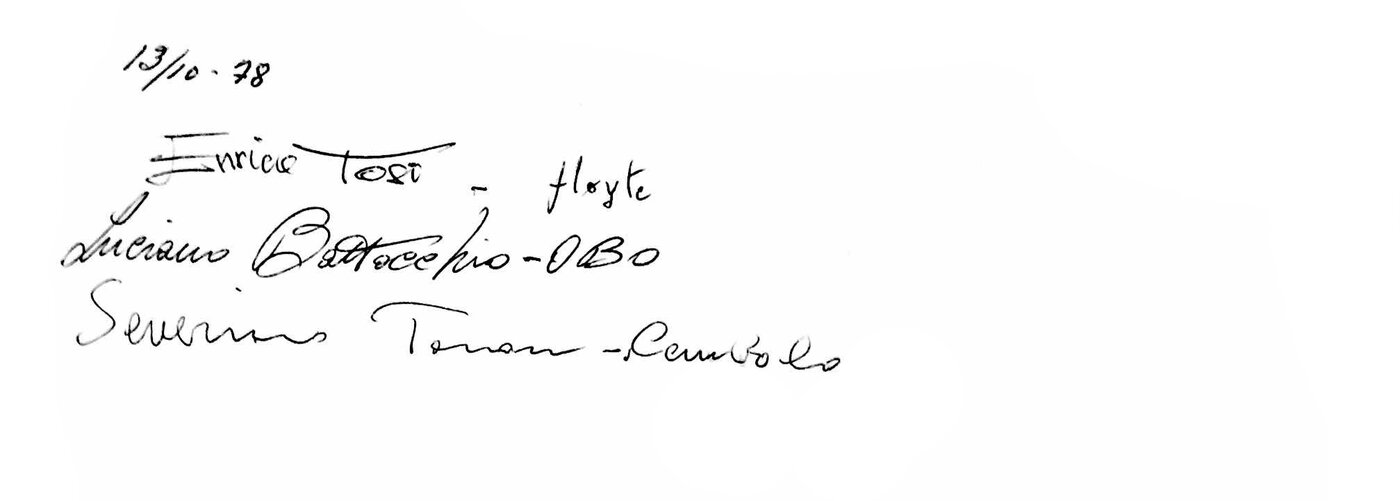 13/10 - 78
Enrico Tosi - flayte
Luciano Battocchio - OBO
Severino Tonon - Cembolo